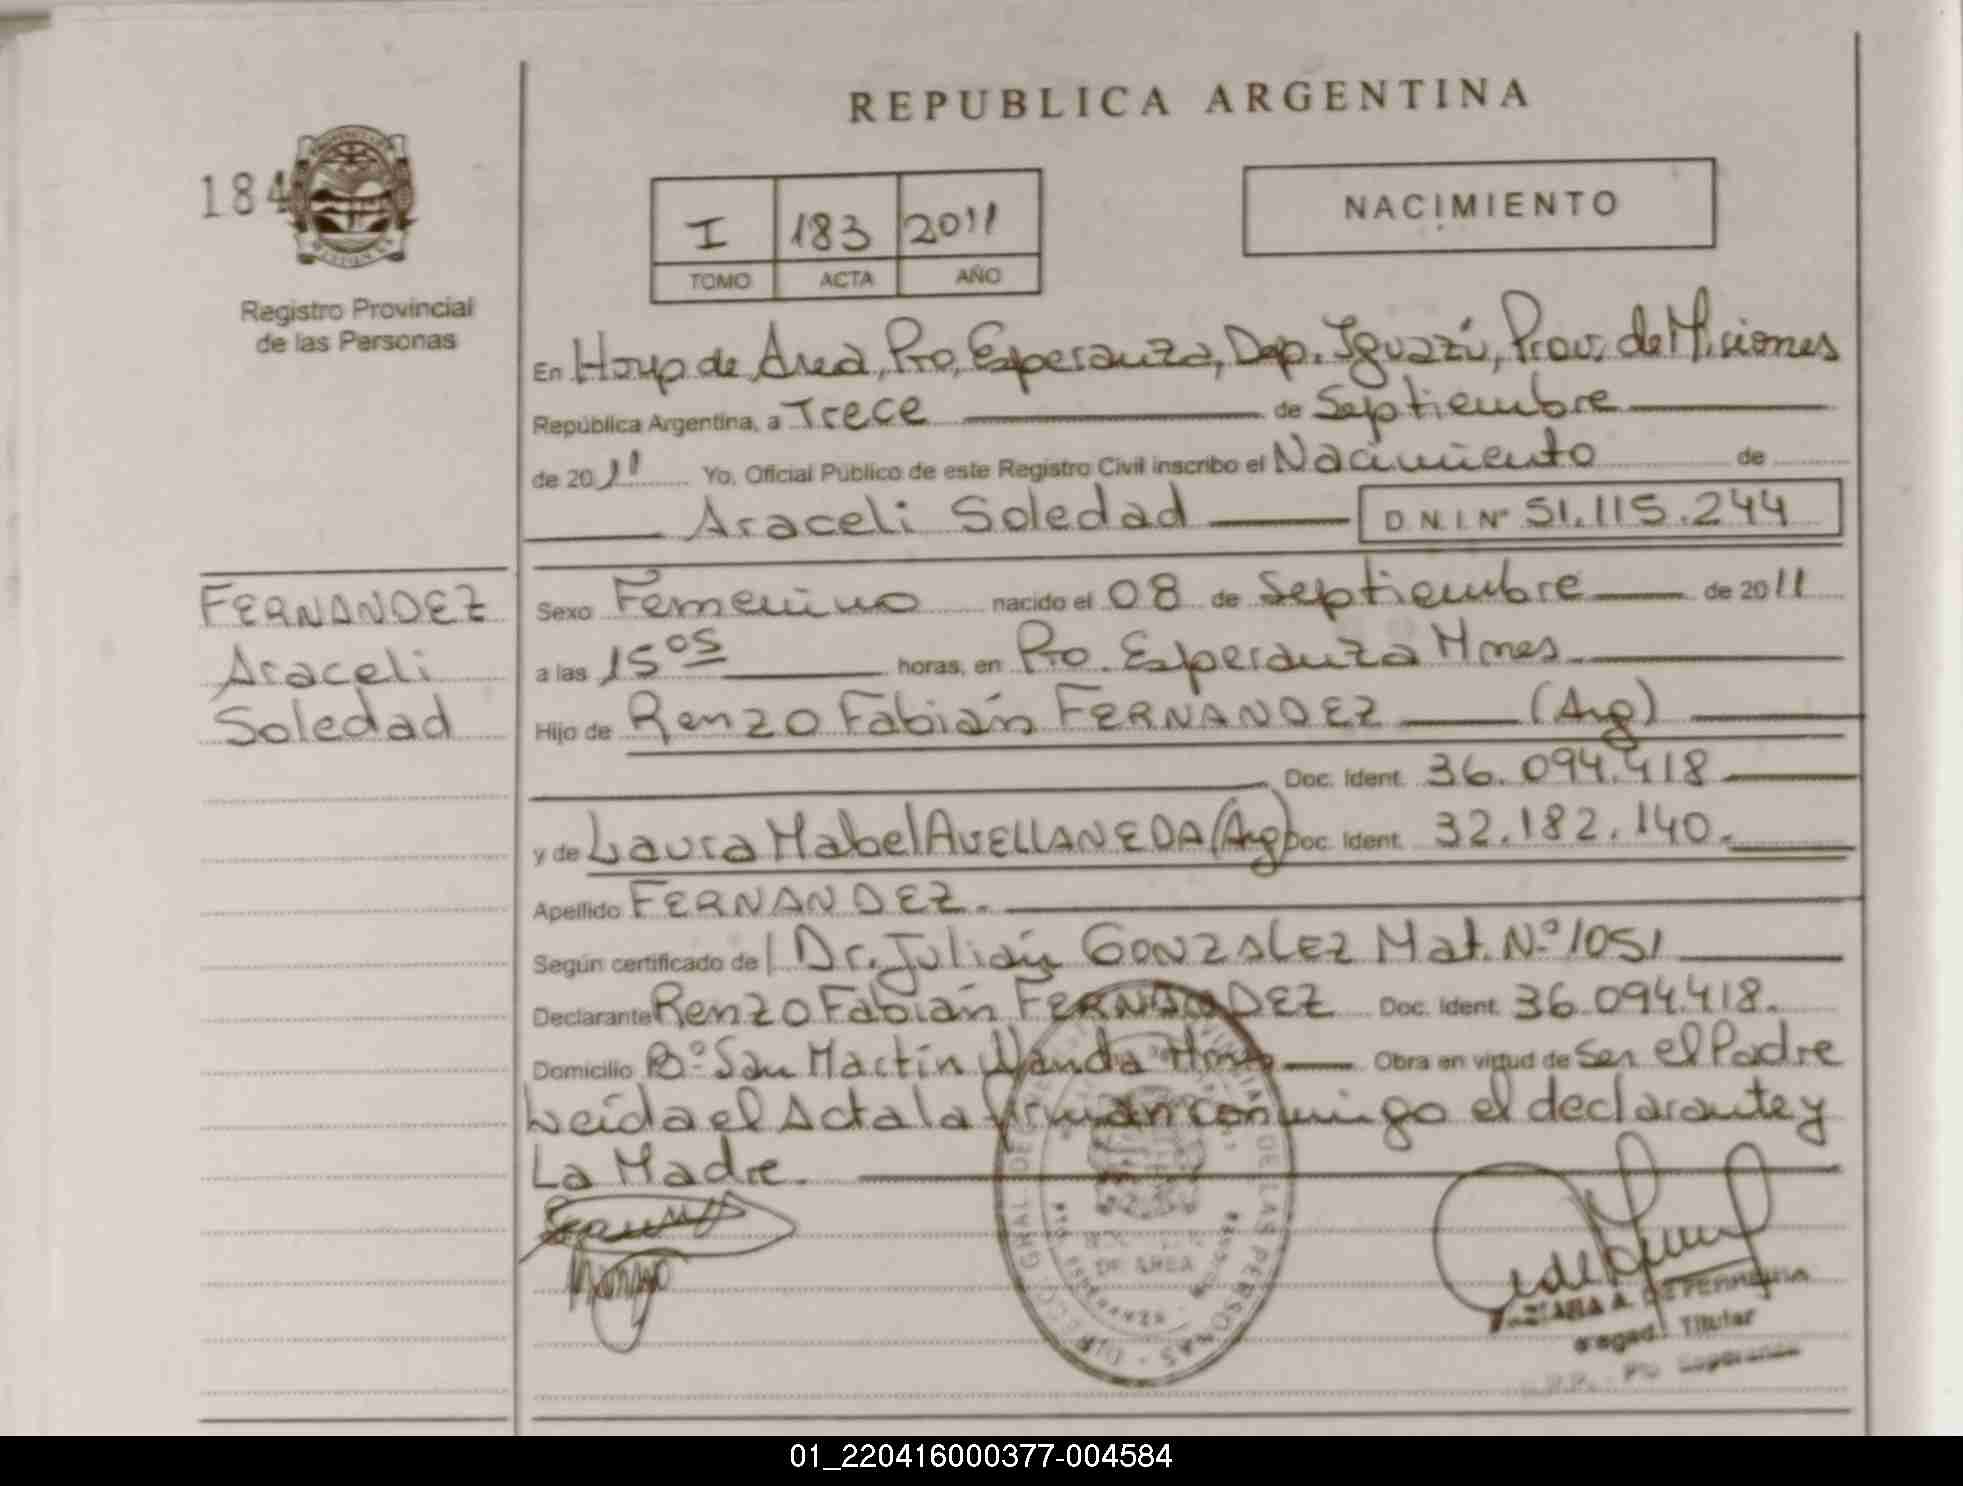 REPUBLICA ARGENTINA
184
Registro Provincial
de las Personas
I 183 2011
TOMO ACTA AÑO
NACIMIENTO
En Hosp de Area, Pto, Esperanza, Dep. Iguazú, Prov. de Misiones
República Argentina, a Trece de Septiembre
de 2011 Yo, Oficial Público de este Registro Civil inscribo el Nacimiento de
Araceli Soledad D N I Nº 51.115.244
FERNANDEZ
Araceli
Soledad
Sexo Femenino nacido el 08 de Septiembre de 2011
a las 15 05 horas, en Pto. Esperanza Mnes
Hijo de Renzo Fabián FERNANDEZ (Arg)
Doc. Ident. 36.094.418
y de Laura Mabel AVELLANEDA (Arg) Doc. Ident. 32.182.140.
Apellido FERNANDEZ.
Según certificado de Dr. Julián GONZALEZ Mat. Nº 1051
Declarante Renzo Fabián FERNANDEZ Doc. Ident. 36.094.418.
Domicilio Bº San Martín Wanda Mnes Obra en virtud de Ser el Padre
Leída el Acta la firman conmigo el declarante y
La Madre.
DE AREA
PTO ESPERANZA - MISIONES
DE LAS PERSONAS
Titular
01_220416000377-004584